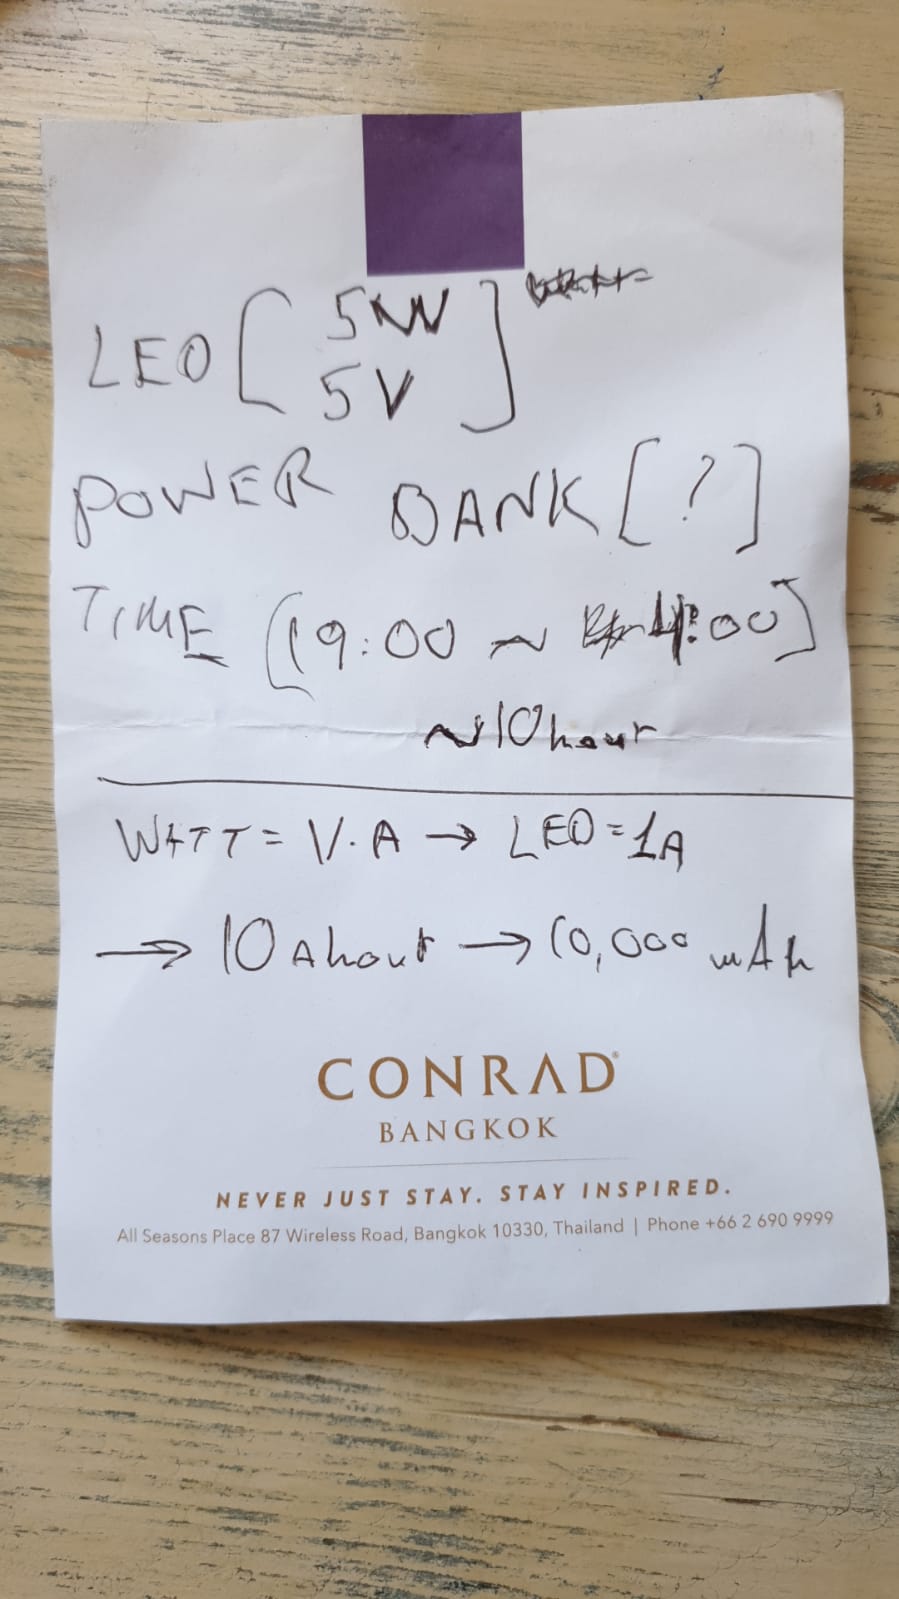 LED [ 5W
5V ]
POWER BANK [?]
TIME [19:00 ~ 4:00]
~10hour
WATT = V.A → LED = 1A
→ 10 Ahour → 10,000 mAh
CONRAD®
BANGKOK
NEVER JUST STAY. STAY INSPIRED.
All Seasons Place 87 Wireless Road, Bangkok 10330, Thailand | Phone +66 2 690 9999